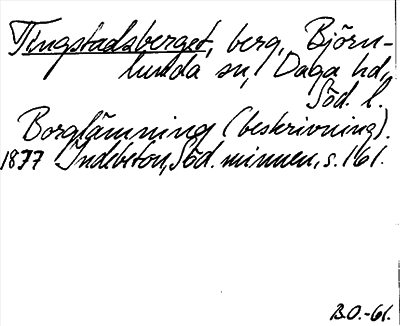 Tingstadsberget, berg, Björn-
lunda sn, Daga hd,
Söd. l.
Borglämning (beskrivning).
1877 Indebetou, Söd. minnen, s. 161.
B.O.-61.